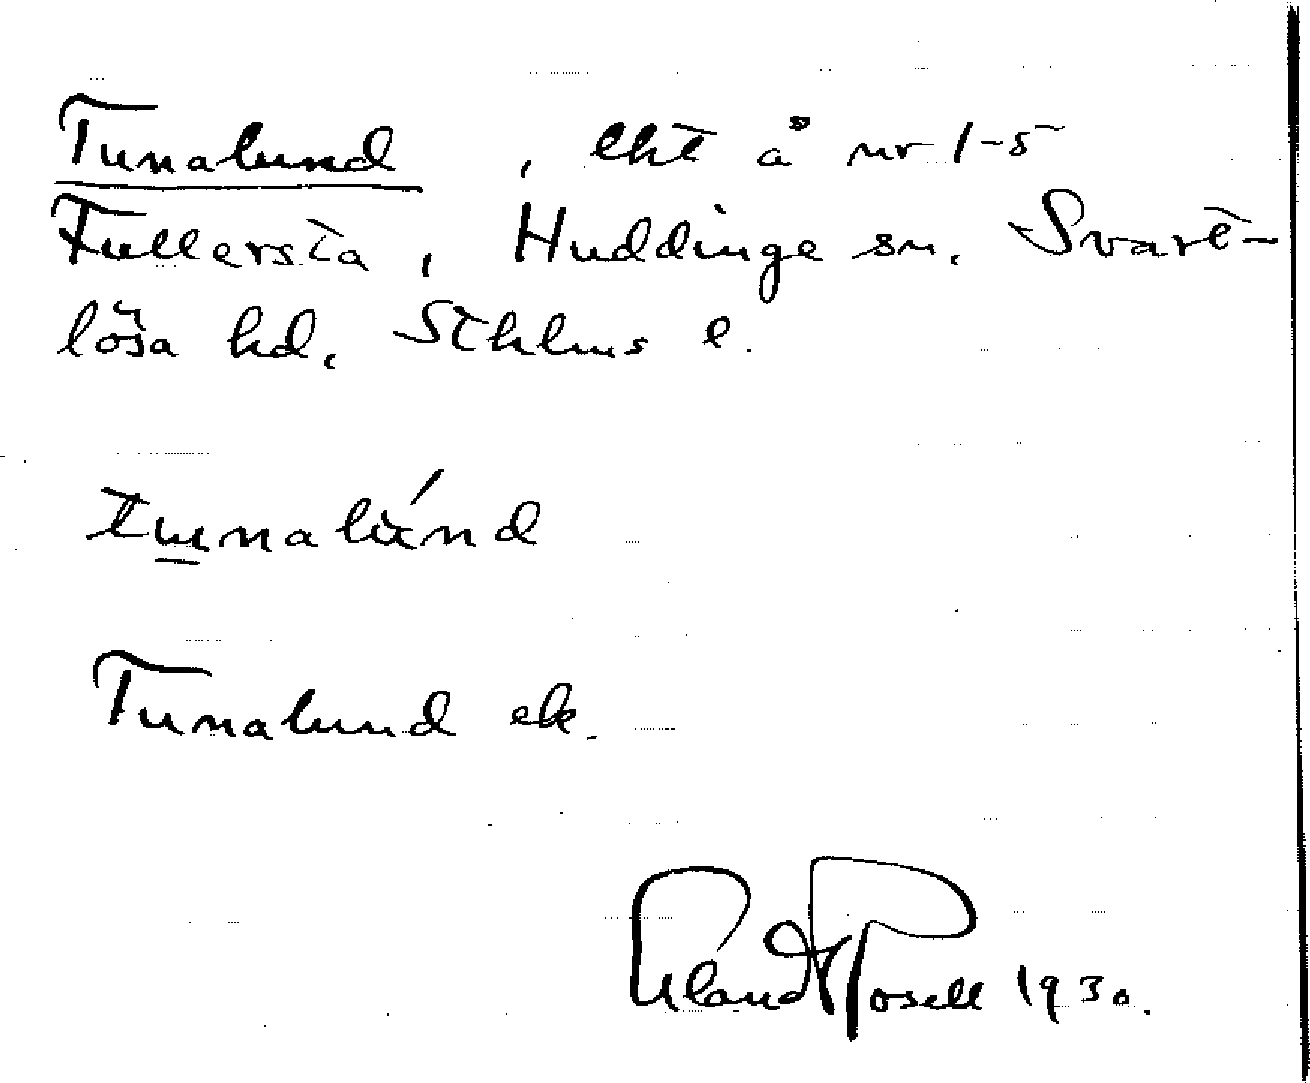 Tunalund, lht å nr 1-5
Fullersta, Huddinge sn. Svart-
lösa hd. Sthlms l.
Tunalund ek.
Rosell 1930.